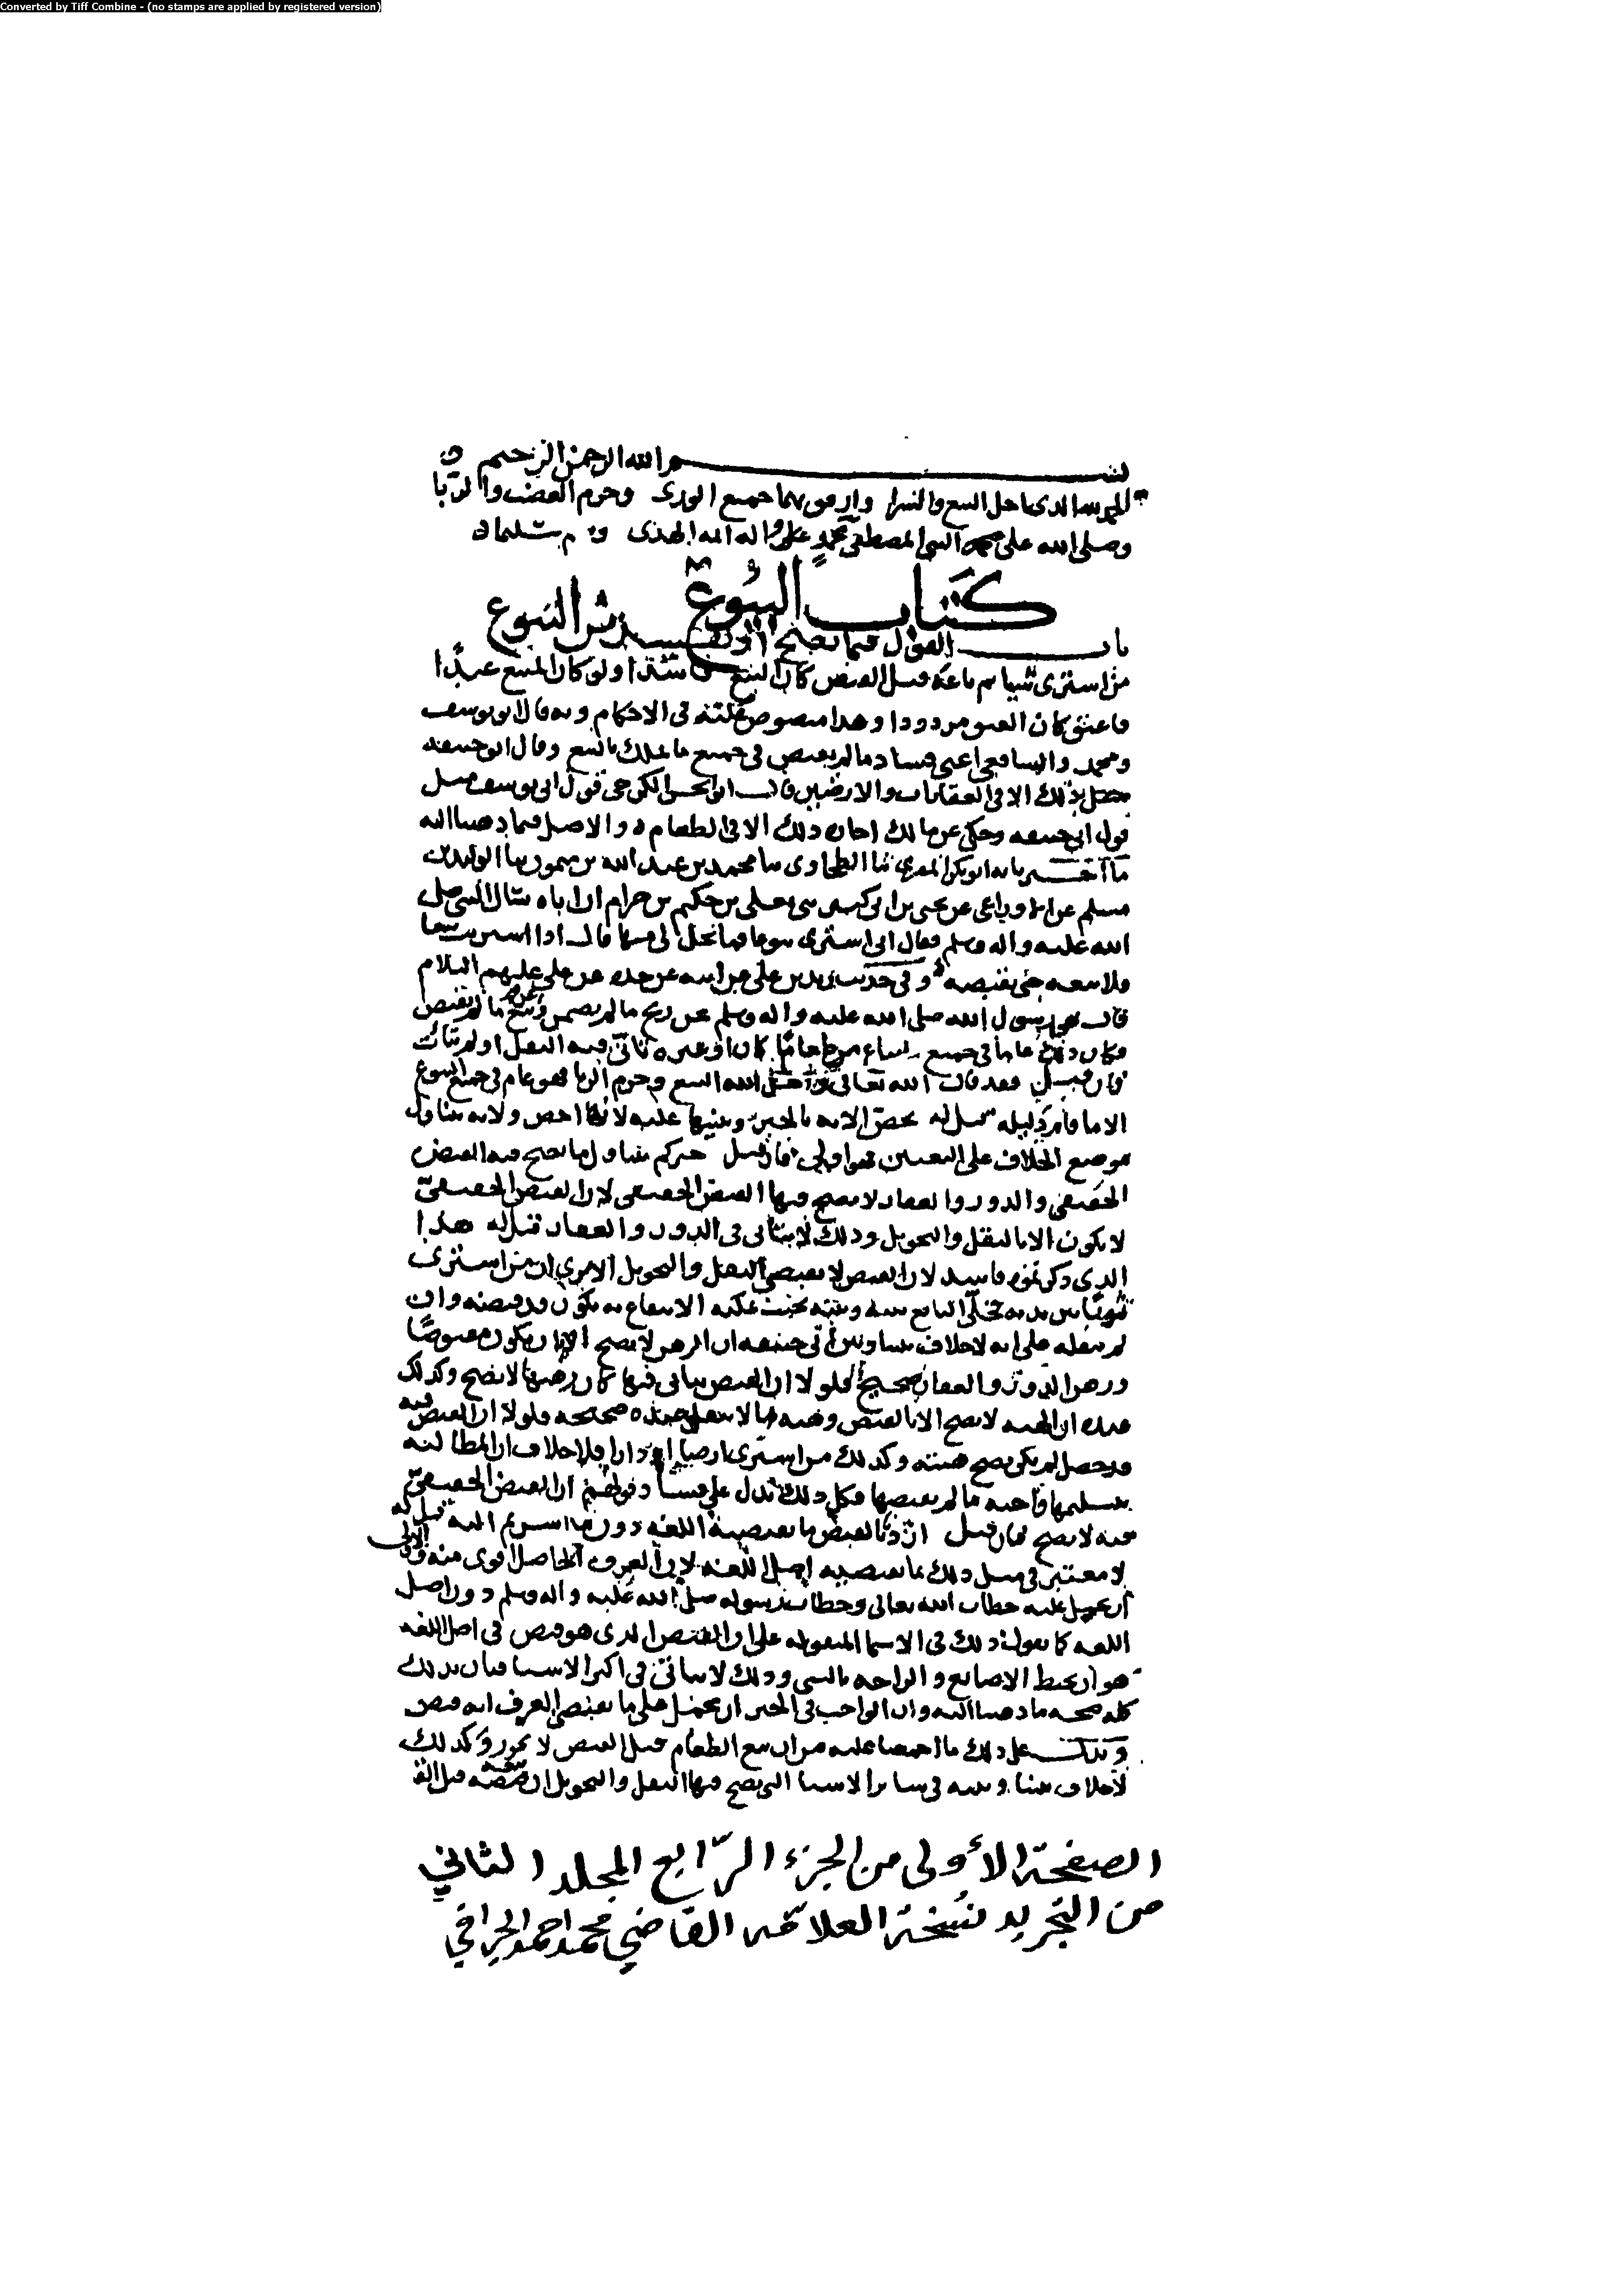 Converted by Tiff Combine - (no stamps are applied by registered version)
بسم الله الرحمن الرحيم
الحمد لله الذي احل البيع والشرا وارفق بهما جميع الورى وحرم الغصب والربا
وصلى الله على النبي المصطفى محمد وعلى اله ائمة الهدى وسلم تسليما
كتاب البيوع
باب القول فيما يصح او يفسد من البيوع
من اشترى شيا ثم باعه قبل القبض كان البيع فاسدا ولو كان المبيع عبدا
فاعتق كان العتق مردودا وهذا منصوص عليه في الاحكام وبه قال ابو يوسف
ومحمد والشافعي اعني فساد ما لم يقبض في جميع ما يملك بالبيع وقال ابو حنيفة
مثل ذلك الا في العقارات والارضين قال ابو الحسن الكرخي قول ابي يوسف مثل
قول ابي حنيفة وحكي عن مالك اجازة ذلك الا في الطعام والاصل فيما ذهبنا اليه
ما اخبرنا به ابو بكر المقري ثنا الطحاوي ثنا محمد بن عبد الله بن ميمون ثنا الوليد بن
مسلم عن الاوزاعي عن يحيى بن ابي كثير ثني يعلى بن حكيم بن حزام ان اباه سال النبي صلى
الله عليه واله وسلم فقال اني اشتري بيوعا فما يحل لي منها قال اذا اشتريت بيعا
فلا تبعه حتى تقبضه وفي حديث زيد بن علي عن ابيه عن جده عن علي عليهم السلام
قال نهى رسول الله صلى الله عليه واله وسلم عن ربح ما لم يضمن وعن بيع ما لم يقبض
فكان ذلك عاما في جميع ما يباع من طعام كان او غيره تاتى فيه النقل او لم يتات
فان قيل فقد قال الله تعالى واحل الله البيع وحرم الربا فهو عام في جميع البيوع
الا ما قام دليله قيل له نخص الاية بالخبر ونبنيها عليه لانه اخص ولانه يتناول
موضع الخلاف على التعيين فهو اولى فان قيل خبركم يتناول ما يصح فيه القبض
الحقيقي والدور والعقار لا يصح فيها القبض الحقيقي لان القبض الحقيقي
لا يكون الا بالنقل والتحويل وذلك لا يتاتى في الدور والعقار قيل له هذا
الذي ذكرتموه فاسد لان القبض لا يقتضي النقل والتحويل الا ترى ان من اشترى
ثوبا بين يديه فخلى البايع بينه وبينه بحيث يمكنه الانتفاع به يكون قد قبضه وان
لم ينقله على انه لا خلاف بيننا وبين ابي حنيفة ان الرهن لا يصح الا ان يكون مقبوضا
ورهن الدور والعقار صحيح فلولا ان القبض يتاتى فيها كان رهنها لا يصح وكذلك
عنده ان الهبة لا تصح الا بالقبض وهبة ما لا ينقل عنده صحيحة فلولا ان القبض فيه
قد حصل لم يكن يصح هبته وكذلك من اشترى ارضا او دارا فلا خلاف ان المطالبة
بتسليمها واجبة ما لم يقبضها فكل ذلك يدل على فساد قولهم ان القبض الحقيقي
فيه لا يصح فان قيل القبض ما يقتضيه اللغة دون ما اشرتم اليه قيل له
لا معتبر في مثل ذلك بما يقتضيه اصل اللغة لان العرف الحاصل اقوى منه والاولى
ان يحمل عليه خطاب الله تعالى وخطاب رسوله صلى الله عليه واله وسلم دون اصل
اللغة كما نقول ذلك في الاسما المنقولة على ان القبض الذي هو قبض في اصل اللغة
هو ان يحيط الاصابع والراحة بالشي وذلك لا يتاتى في اكثر الاشيا فبان بذلك
كله صحة ما ذهبنا اليه وان الواجب في الخبر ان يحمل على ما يقتضي العرف انه قبض
ويدل على ذلك ما اجمعنا عليه من ان بيع الطعام قبل القبض لا يجوز وكذلك
لا خلاف بيننا وبينه في ساير الاشيا التي يصح فيها النقل والتحويل ان بيعه قبل القبض
الصفحة الأولى من الجزء الرّابع المجلد الثاني
من التجريد نسخة العلامّه القاضي محمد احمد الجرافي